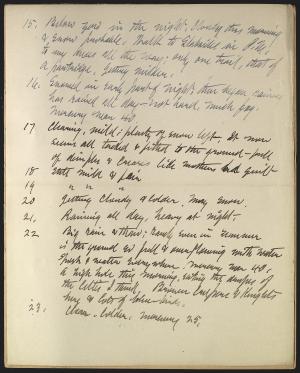 15. Below zero in the night; cloudy this morning
& snow probable. Walk to in P.M.
to my knees all the way; only one track, that of
a partridge. Getting milder.
16. Snowed in early part of night then began raining
has rained all day - not hard, much fog.
mercury near 40.
17 Clearing, mild; plenty of snow left. The snow
seems all tucked & fitted to the ground - full
of dimples & creases like mothers bed quilt
18 Still mild & fair
19 " " "
20 Getting cloudy & colder, may snow.
21. Raining all day, heavy at night.
22 Big rain & thaw; warm even in
is the ground so full & overflowing with water
Slush & water everywhere, mercury near 40.
a high hole this morning, eating the drupes of
the Celtis I think. Between & Knights
23. Clear. Colder, mercury 25.